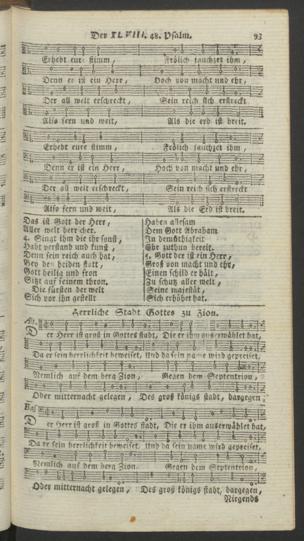 Der XLVIII. 48. Psalm. 93
Erhebt eure stimm, Frölich jauchzet ihm,
Denn er ist ein Herr, Hoch von macht und ehr,
Der all welt erschreckt, Sein reich sich erstreckt
Also fern und weit, Als die erd ist breit.
Erhebt eure stimm, Frölich jauchzet ihm,
Denn er ist ein Herr, Hoch von macht und ehr,
Der all welt erschreckt, Sein reich sich erstreckt
Also fern und weit, Als die Erd ist breit.
Das ist Gott der Herr,
Aller welt herrscher.
4. Singt ihm die ihr sonst,
Habt verstand und kunst,
Denn sein reich auch hat,
Bey den heiden statt,
Gott heilig und fron
Sitzt auf seinem thron.
Die fürsten der welt
Sich vor ihn gestellt
Haben allesam
Dem Gott Abraham
In demüthigkeit
Ehr zuthun bereit.
5. Gott der ist ein Herr,
Groß von macht und ehr,
Einen schild er hält,
Zu schutz aller welt,
Seine majestät,
Sich erhöhet hat.
Herrliche Stadt Gottes zu Zion.
Der Herr ist groß in Gottes stadt, Die er ihm auserwählet hat,
Da er sein herrlichkeit beweiset, Und da sein name wird gepreiset,
Nemlich auf dem berg Zion, Gegen dem Septentrion,
Oder mitternacht gelegen, Des groß königs stadt, dargegen
Der Herr ist groß in Gottes stadt, Die er ihm auserwählet hat,
Da er sein herrlichkeit beweiset, Und da sein name wird gepreiset,
Nemlich auf dem berg Zion, Gegen dem Septentrion,
Oder mitternacht gelegen, Des groß königs stadt, dargegen,
Nirgends